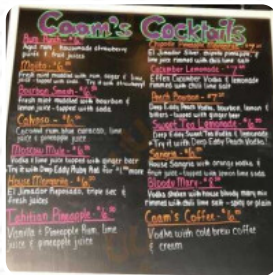 Coam's Cocktails
Rum Punch
Aged rum, housemade strawberry
puree & fruit juices
Mojito - $6
Fresh mint muddled with rum, sugar & lime
juice - topped with soda Try it with strawberry!
Bourbon Smash - $6
Fresh mint muddled with bourbon &
lemon juice - topped with soda
Calypso - $6
Coconut rum, blue curacao, lime
juice & pineapple juice
Moscow Mule - $6
Vodka & lime juice topped with ginger beer
Try it with Deep Eddy Ruby Red for $1 more
House Margarita
El Jimador Reposado, triple sec &
fresh juices
Tahitian Pineapple - $6
Vanilla & Pineapple Rum, lime
juice & pineapple juice
El Jimador Silver
lime juice rimmed with chili lime salt
Cucumber Lemonade
Effen Cucumber Vodka & lemonade
rimmed with chili lime salt
Peach Bourbon - $7
Deep Eddy Peach Vodka, bourbon, lemon &
bitters - topped with ginger beer
Sweet Tea Lemonade - $6
Deep Eddy Sweet Tea Vodka & lemonade
Try it with Deep Eddy Peach Vodka!
Sangria
House Sangria with orange vodka &
fruit juice - topped with lemon lime soda
Bloody Mary
Vodka shaken with house bloody mary mix
rimmed with chili lime salt - spicy or plain
Coam's Coffee - $6
Vodka with cold brew coffee
& cream